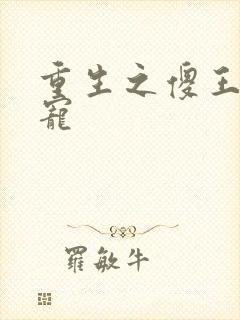 重生之傻王
寵
羅敏牛